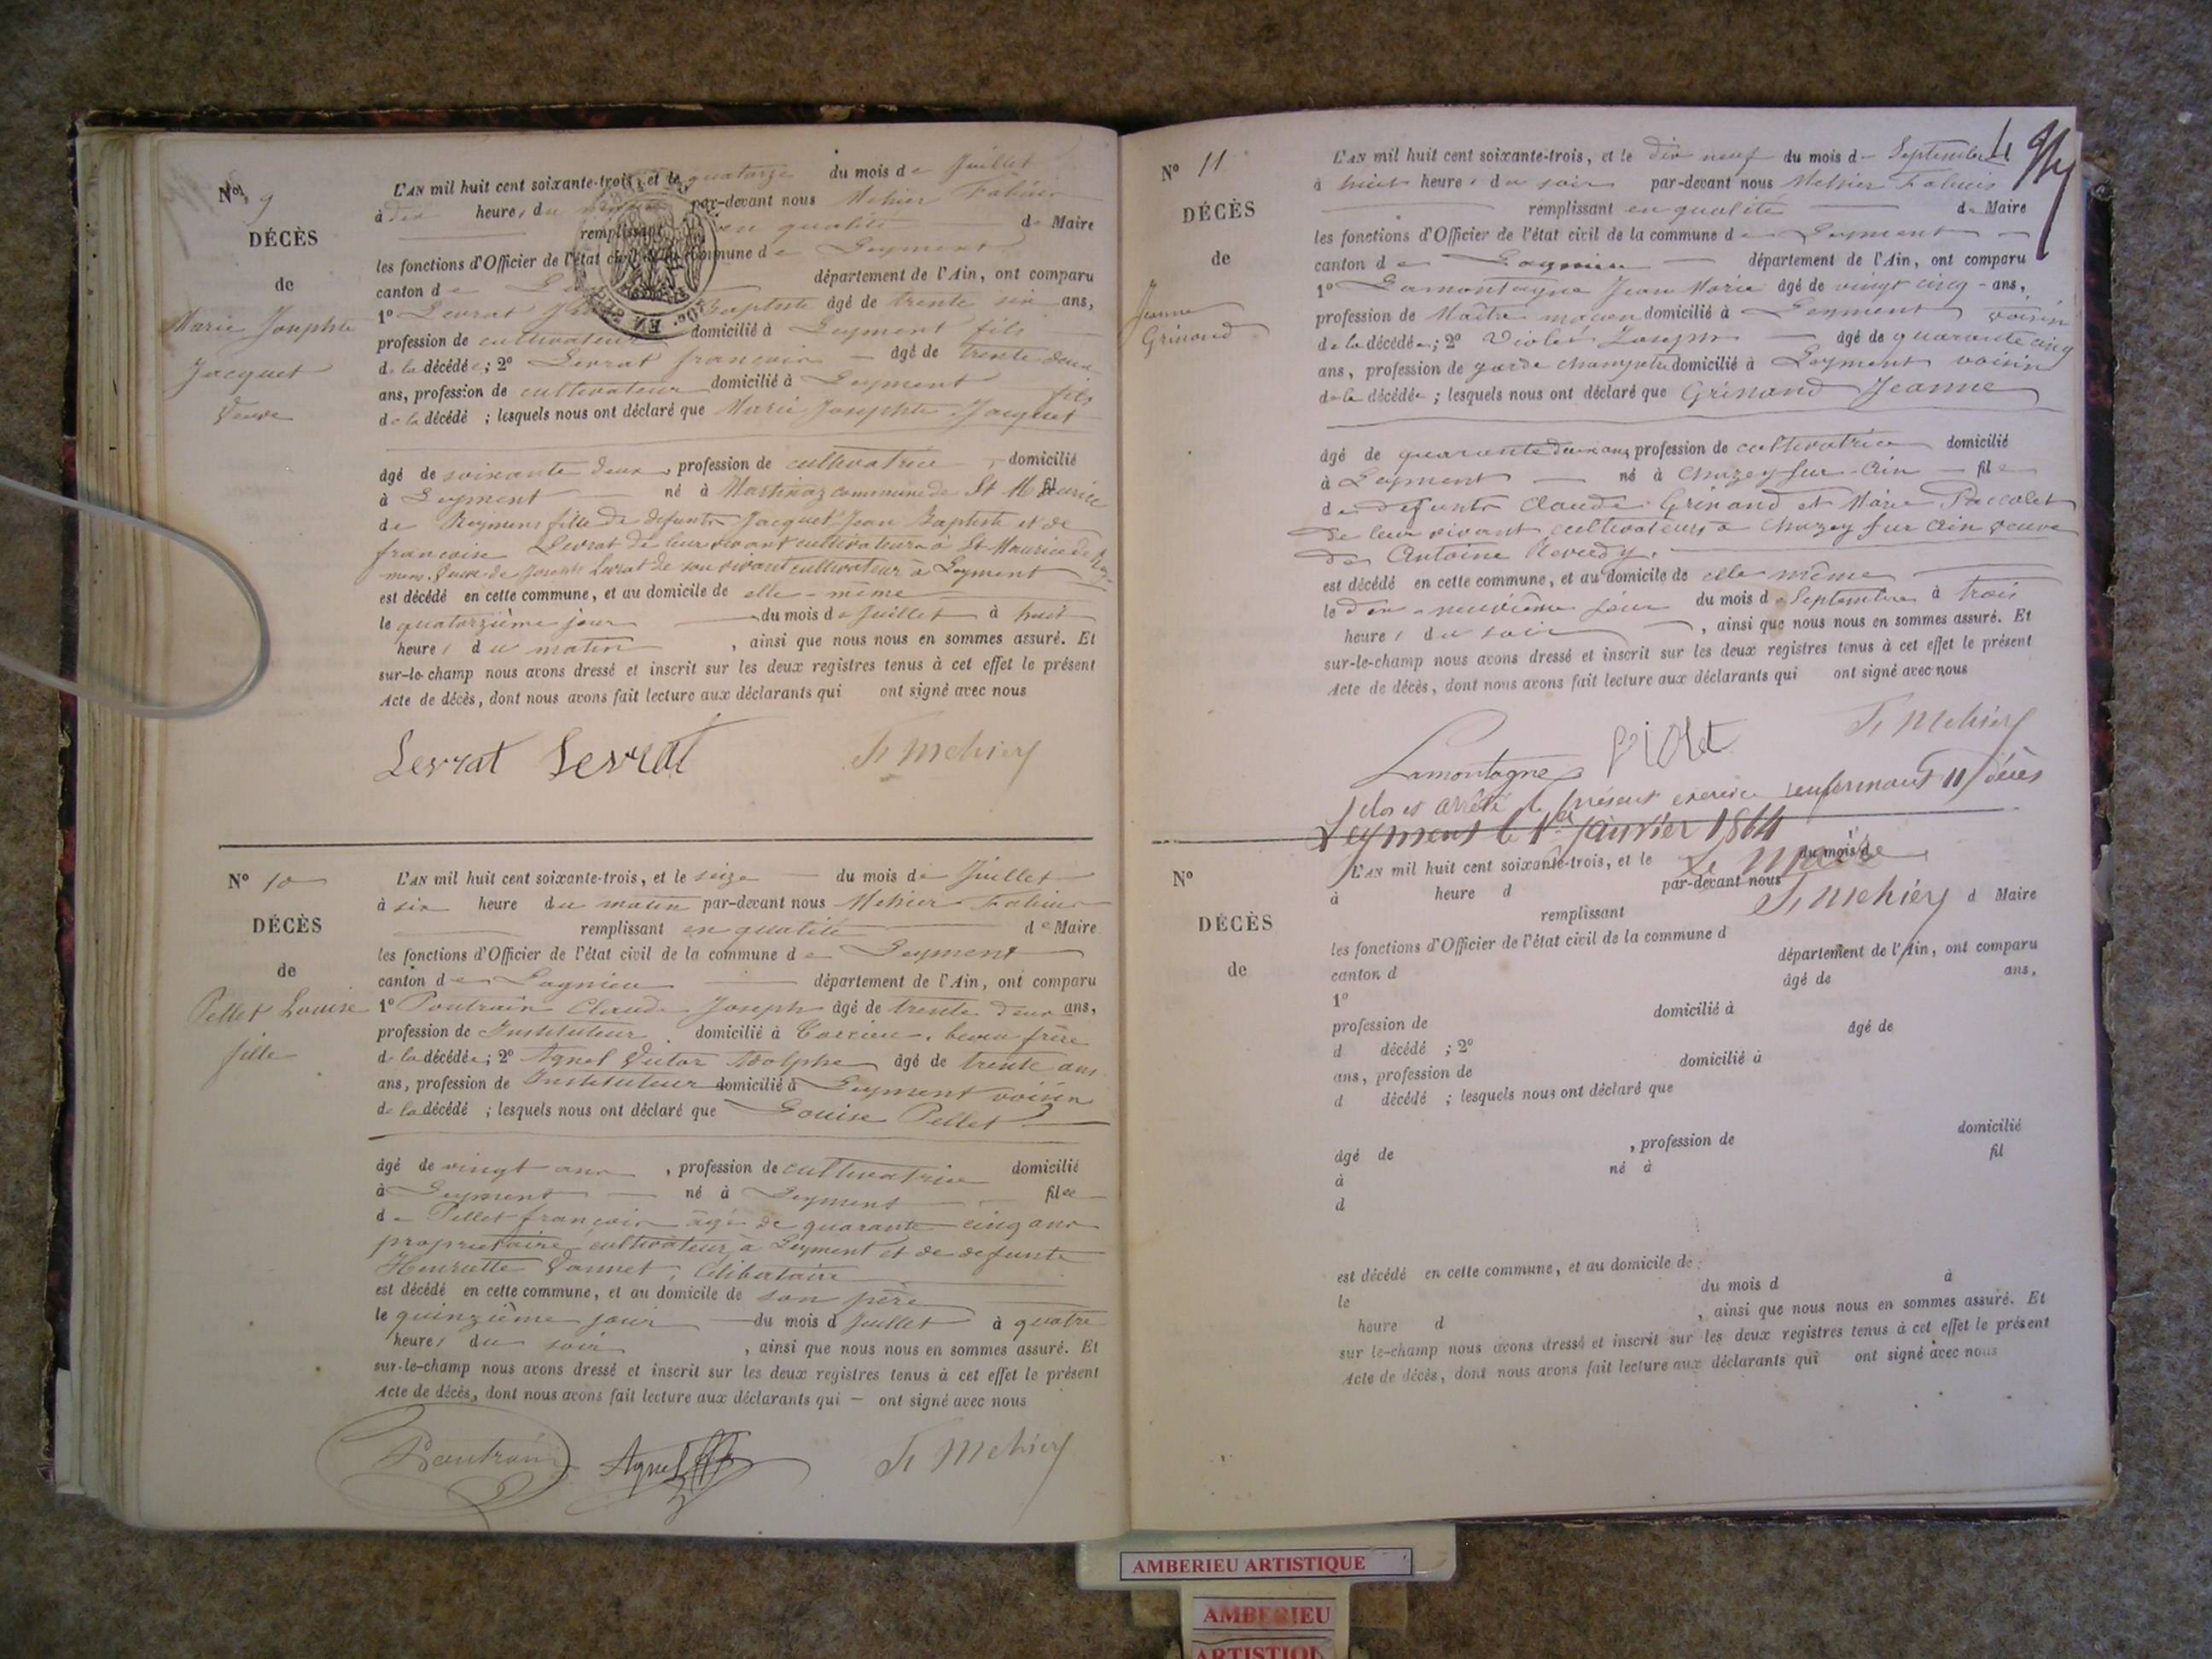 Nº 9
DÉCÈS
de
Marie Josephte
Jacquet
Veuve
L'AN mil huit cent soixante-trois, et le quatorze du mois de Juillet
à dix heures du par-devant nous Mehier Fabien
remplissant en qualité de Maire
les fonctions d'Officier de l'état civil de la commune de Leyment
canton de département de l'Ain, ont comparu
1º Levrat Baptiste âgé de trente six ans,
profession de cultivateur domicilié à Leyment fils
de la décédée; 2º Levrat françois âgé de trente deux
ans, profession de cultivateur domicilié à Leyment fils
de la décédé ; lesquels nous ont déclaré que Marie Josephte Jacquet
âgé de soixante deux, profession de cultivatrice domicilié
à Leyment né à Martinaz commune de St Maurice
de Reymens fille de defunts Jacquet Jean Baptiste et de
francoise Levrat de leur vivant cultivateurs à St Maurice de Rey-
mens. Veuve de Joseph Levrat de son vivant cultivateur à Leyment
est décédé en cette commune, et au domicile de elle-même
le quatorzième jour du mois de Juillet à huit
heures du matin, ainsi que nous nous en sommes assuré. Et
sur-le-champ nous avons dressé et inscrit sur les deux registres tenus à cet effet le présent
Acte de décès, dont nous avons fait lecture aux déclarants qui ont signé avec nous
Levrat Levrat F. Mehier
Nº 10
DÉCÈS
de
Pellet Louise
fille
L'AN mil huit cent soixante-trois, et le seize du mois de Juillet
à six heure du matin par-devant nous Mehier Fabien
remplissant en qualité de Maire
les fonctions d'Officier de l'état civil de la commune de Leyment
canton de Lagnieu département de l'Ain, ont comparu
1º Poutrain Claude Joseph âgé de trente deux ans,
profession de Instituteur domicilié à Torcieu, beau frère
de la décédée; 2º Agnel Victor Adolphe âgé de trente ans
ans, profession de Instituteur domicilié à Leyment voisin
de la décédé ; lesquels nous ont déclaré que Louise Pellet
âgé de vingt ans, profession de cultivatrice domicilié
à Leyment né à Leyment fille
de Pellet françois âgé de quarante cinq ans
propriétaire cultivateur à Leyment et de defunte
Henriette Vannet, Célibataire
est décédé en cette commune, et au domicile de son père
le quinzième jour du mois d Juillet à quatre
heures du soir, ainsi que nous nous en sommes assuré. Et
sur-le-champ nous avons dressé et inscrit sur les deux registres tenus à cet effet le présent
Acte de décès, dont nous avons fait lecture aux déclarants qui — ont signé avec nous
Poutrain Agnel F. Mehier
Nº 11
DÉCÈS
de
Jeanne
Grinand
L'AN mil huit cent soixante-trois, et le dix neuf du mois de Septembre
à huit heures du soir par-devant nous Mehier Fabien
remplissant en qualité de Maire
les fonctions d'Officier de l'état civil de la commune de Leyment
canton de Lagnieu département de l'Ain, ont comparu
1º Lamontagne Jean Marie âgé de vingt cinq ans,
profession de Maître maçon domicilié à Leyment voisin
de la décédée; 2º Violet Joseph âgé de quarante cinq
ans, profession de garde champetre domicilié à Leyment voisin
de la décédée; lesquels nous ont déclaré que Grinand Jeanne
âgé de quarante deux ans profession de cultivatrice domicilié
à Leyment né à Chazey sur-Ain file
de defunts Claude Grinand et Marie Paccolet
de leur vivant cultivateurs à Chazey sur Ain veuve
de Antoine Reverdy.
est décédé en cette commune, et au domicile de elle même
le dix-neuvième jour du mois de Septembre à trois
heures du soir, ainsi que nous nous en sommes assuré. Et
sur-le-champ nous avons dressé et inscrit sur les deux registres tenus à cet effet le présent
Acte de décès, dont nous avons fait lecture aux déclarants qui ont signé avec nous
Lamontagne Violet F. Mehier
clos et arrêté le présent exercice renfermant 11 décès
Leyment le 1er Janvier 1864
Le Maire
F. Mehier
Nº
DÉCÈS
de
L'AN mil huit cent soixante-trois, et le du mois d
à heure d par-devant nous
remplissant d Maire
les fonctions d'Officier de l'état civil de la commune d
canton d département de l'Ain, ont comparu
1º âgé de ans,
profession de domicilié à
d décédé ; 2º âgé de
ans, profession de domicilié à
d décédé ; lesquels nous ont déclaré que
âgé de , profession de domicilié
à né à fil
d
est décédé en cette commune, et au domicile de
le du mois d à
heure d , ainsi que nous nous en sommes assuré. Et
sur le-champ nous avons dressé et inscrit sur les deux registres tenus à cet effet le présent
Acte de décès, dont nous avons fait lecture aux déclarants qui ont signé avec nous
AMBERIEU ARTISTIQUE
AMBERIEU
ARTISTIQUE